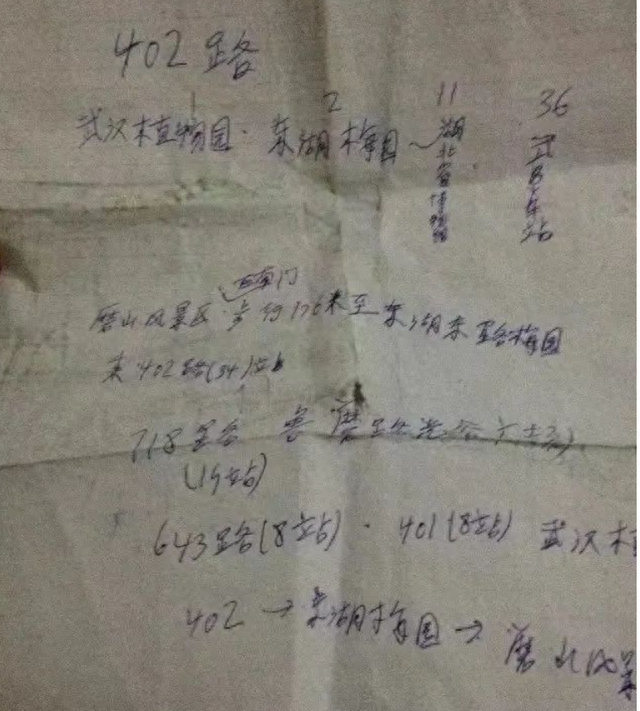 402路
2 11 36
武汉植物园·东湖梅园~湖北省博物馆 武昌车站
西南门
磨山风景区·步行176米至东湖东路梅园
乘402路(34)站
718路 鲁磨路
(19站)
643路(8站)·401(8站) 武汉植
402→东湖梅园→磨山风景